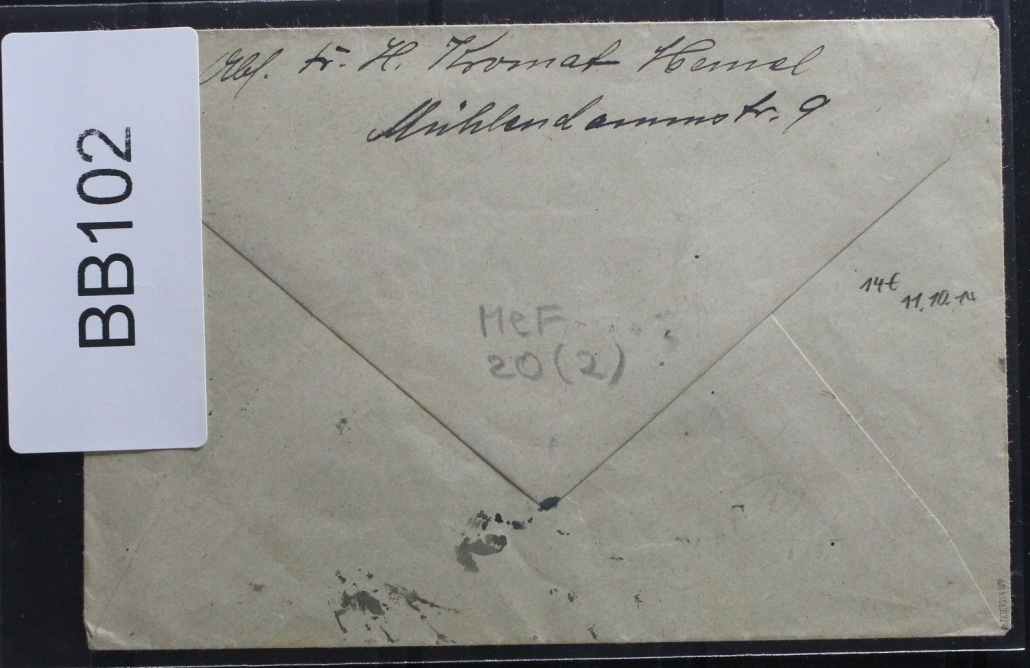 Abs. Fr. H. Kromat Memel
Mühlendammstr. 9
BB102
14€
11.10.14
MeF
20(2)